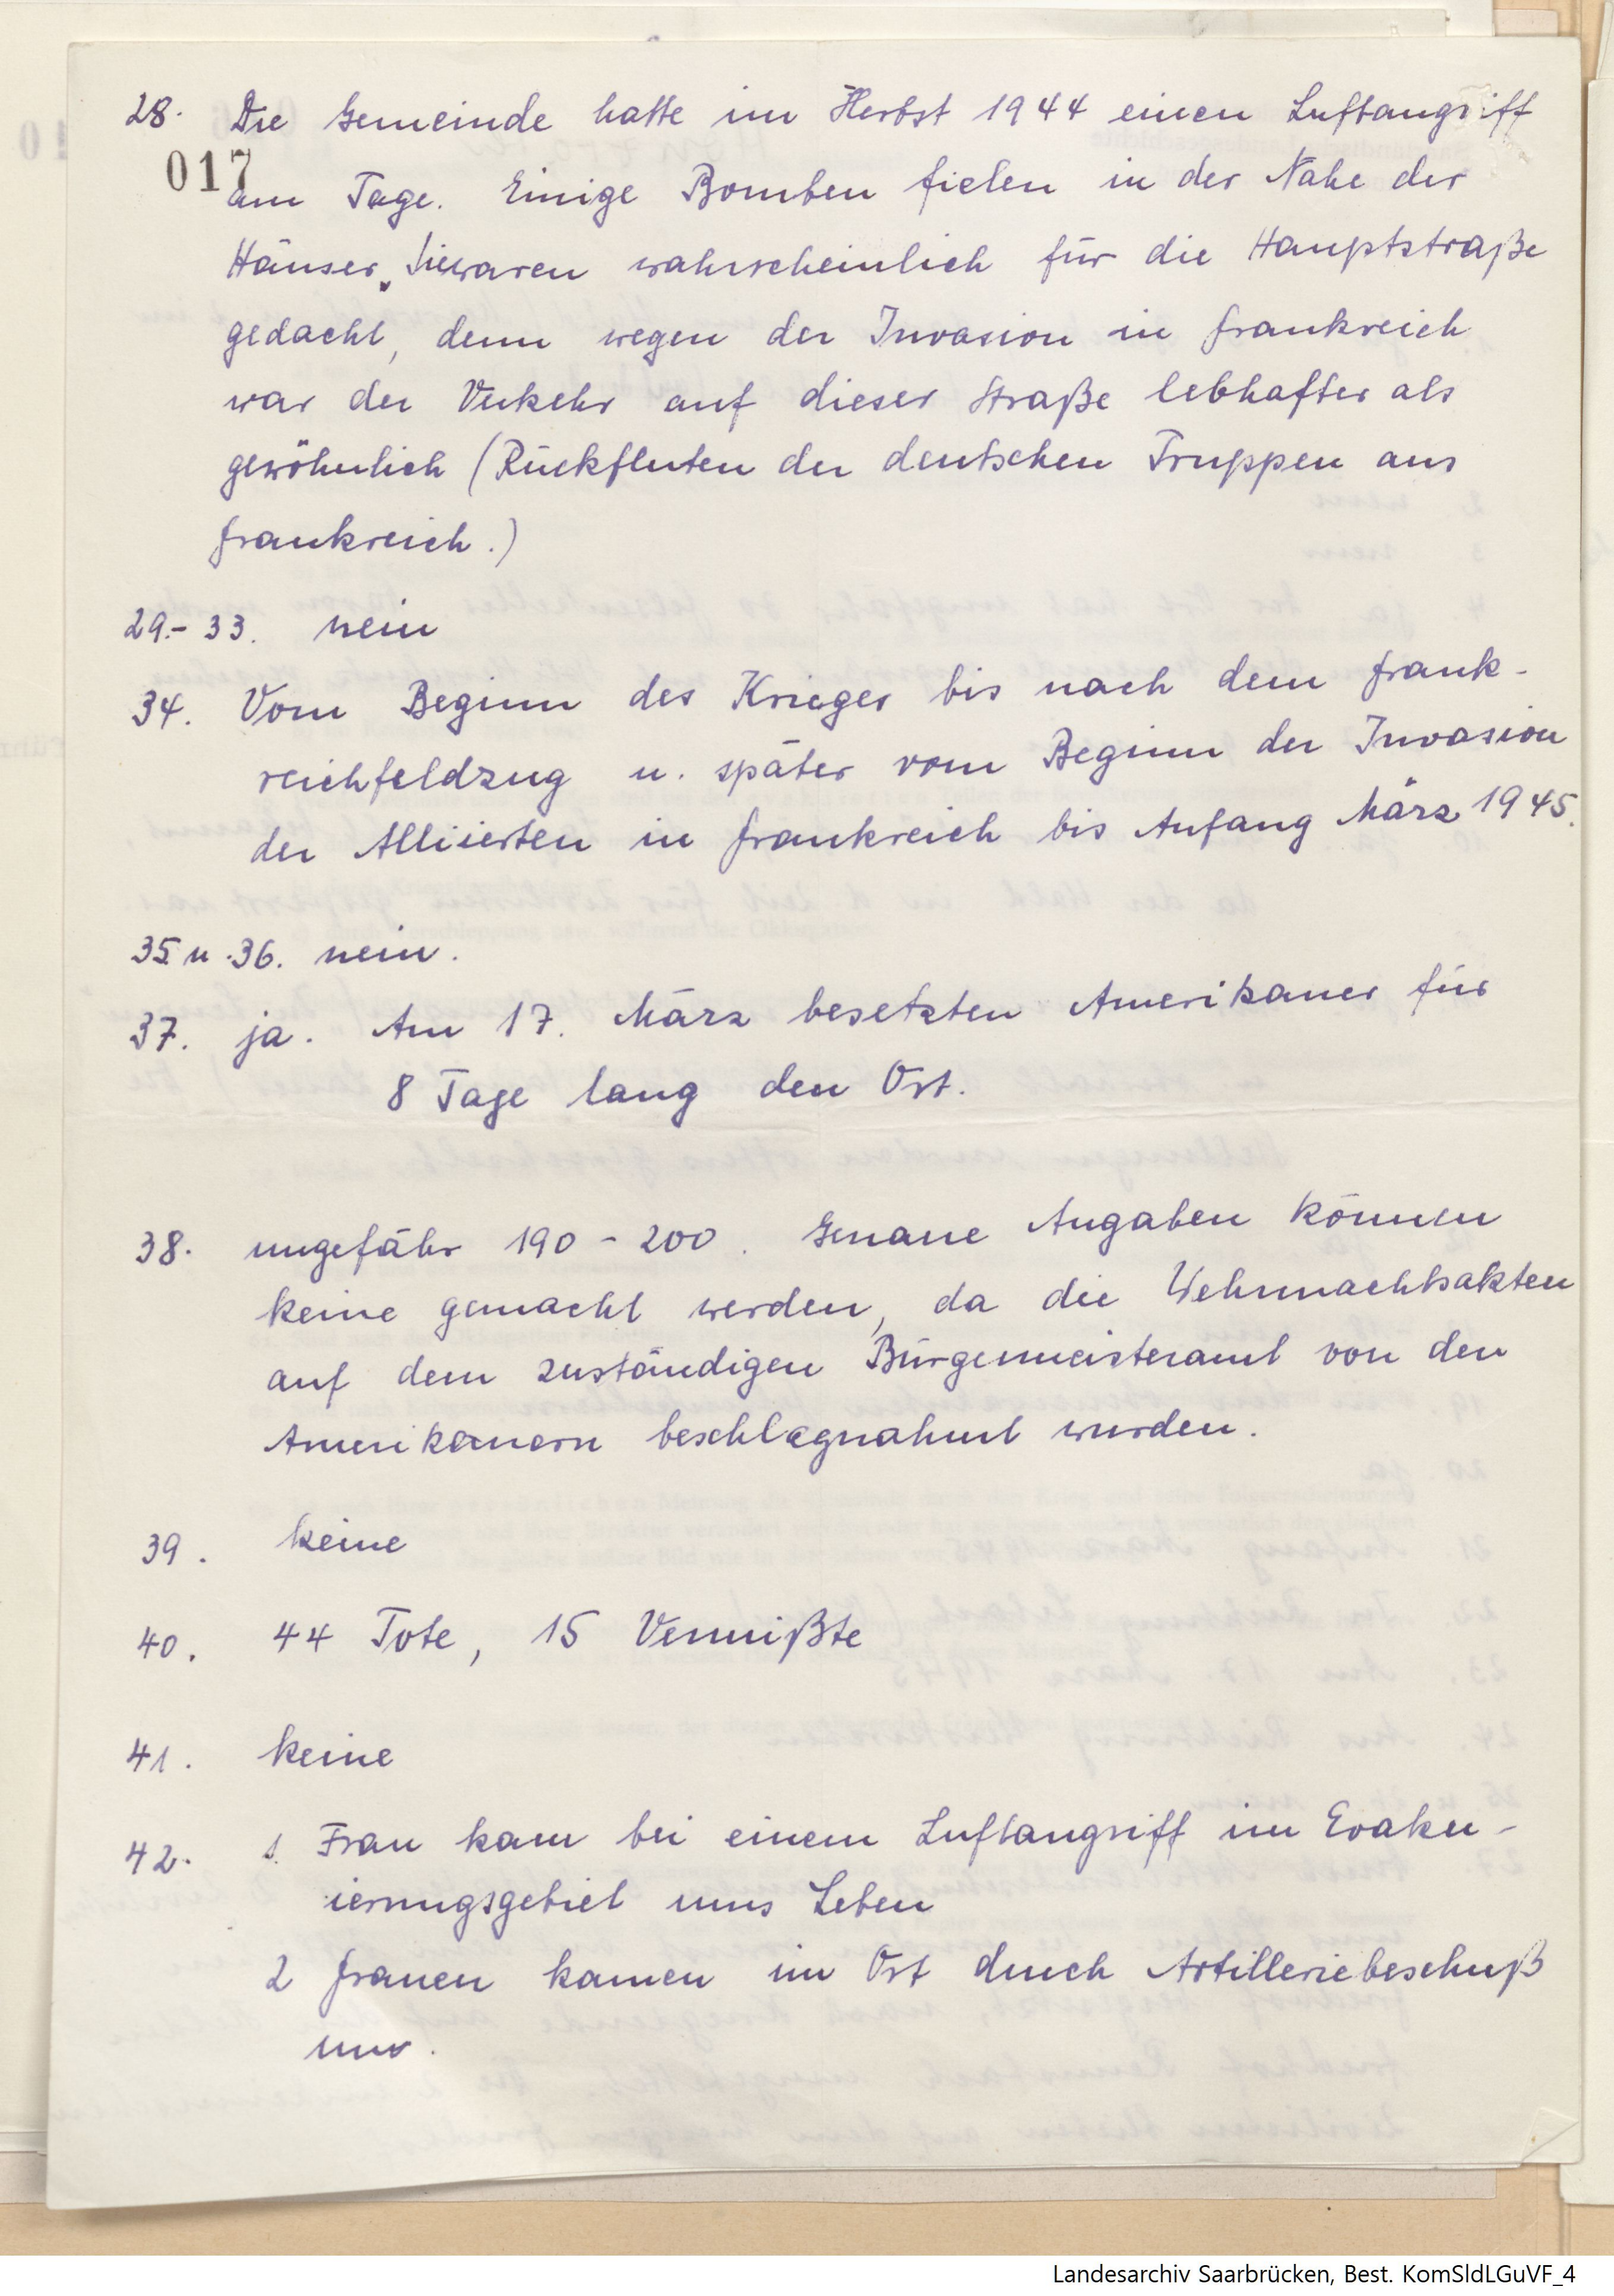 28. Die Gemeinde hatte im Herbst 1944 einen Luftangriff
017
am Tage. Einige Bomben fielen in der Nähe der
Häuser. Sie waren wahrscheinlich für die Hauptstraße
gedacht, denn wegen der Invasion in Frankreich
war der Verkehr auf dieser Straße lebhafter als
gewöhnlich (Rückfluten der deutschen Truppen aus
Frankreich.)
29.- 33. nein
34. Vom Beginn des Krieges bis nach dem Frank-
reichfeldzug u. später vom Beginn der Invasion
der Alliierten in Frankreich bis Anfang März 1945.
35. u. 36. nein.
37. ja. Am 17. März besetzten Amerikaner für
8 Tage lang den Ort.
38. ungefähr 190 - 200. Genaue Angaben können
keine gemacht werden, da die Wehrmachtsakten
auf dem zuständigen Bürgermeisteramt von den
Amerikanern beschlagnahmt wurden.
39. keine
40. 44 Tote, 15 Vermißte
41. keine
42. 1. Frau kam bei einem Luftangriff im Evaku-
ierungsgebiet ums Leben
2 Frauen kamen im Ort durch Artilleriebeschuß
um.
Landesarchiv Saarbrücken, Best. KomSldLGuVF_4